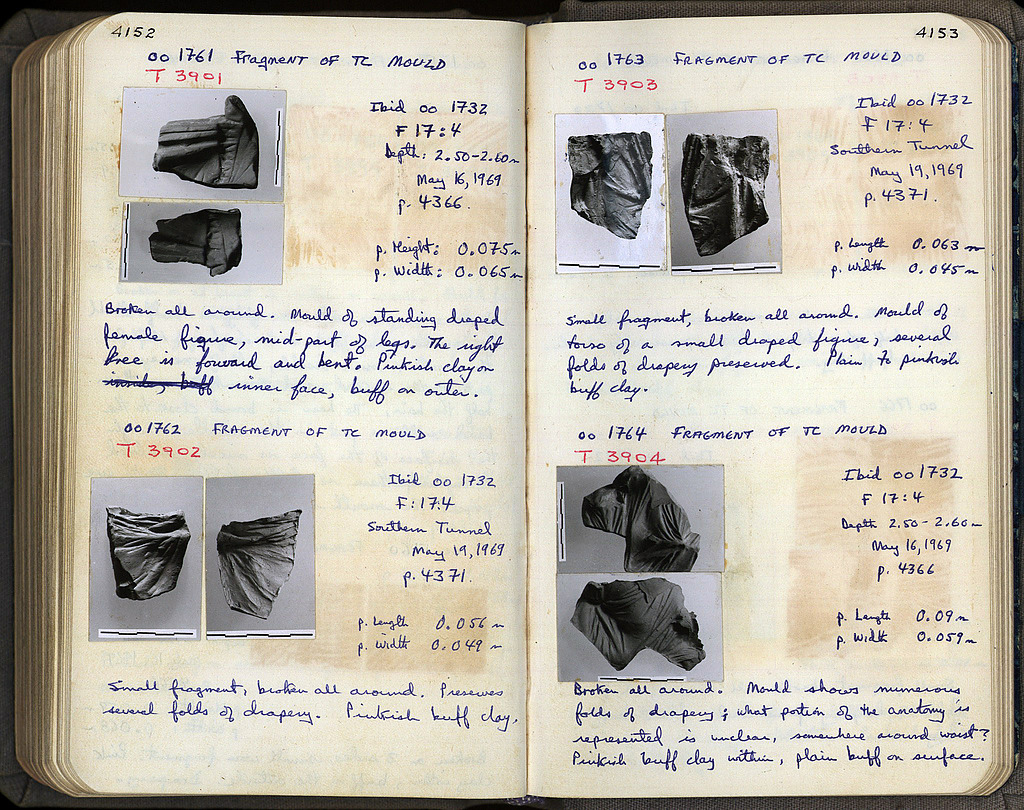 4152
oo 1761 Fragment of TC MOULD
T 3901
Ibid oo 1732
F 17:4
Depth: 2.50-2.60m
May 16, 1969
p. 4366.
p. Height: 0.075m
p. Width: 0.065m
Broken all around. Mould of standing draped
female figure, mid-part of legs. The right
knee is forward and bent. Pinkish clay on
inside, buff inner face, buff on outer.
oo 1762 FRAGMENT OF TC MOULD
T 3902
Ibid oo 1732
F:17:4
Southern Tunnel
May 19, 1969
p. 4371.
p. Length 0.056 m
p. Width 0.049 m
Small fragment, broken all around. Preserves
several folds of drapery. Pinkish buff clay.
4153
oo 1763 FRAGMENT OF TC MOULD
T 3903
Ibid oo 1732
F 17:4
Southern Tunnel
May 19, 1969
p. 4371.
p. Length 0.063 m
p. Width 0.045 m
Small fragment, broken all around. Mould of
torso of a small draped figure, several
folds of drapery preserved. Plain to pinkish
buff clay.
oo 1764 FRAGMENT OF TC MOULD
T 3904
Ibid oo 1732
F 17:4
Depth 2.50-2.60m
May 16, 1969
p. 4366
p. Length 0.09 m
p. Width 0.059 m
Broken all around. Mould shows numerous
folds of drapery; what portion of the anatomy is
represented is unclear, somewhere around waist?
Pinkish buff clay within, plain buff on surface.